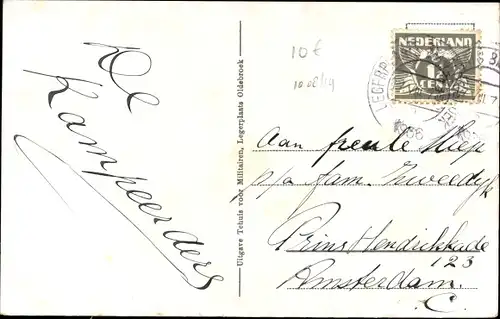 De
Kampeerders
Uitgave Tehuis voor Militairen, Legerplaats Oldebroek
10 €
NEDERLAND
1
CENT
LEGERP
1936
Aan
p/a fam. Zweedijk
Prins Hendrikkade
123
Amsterdam.
C.